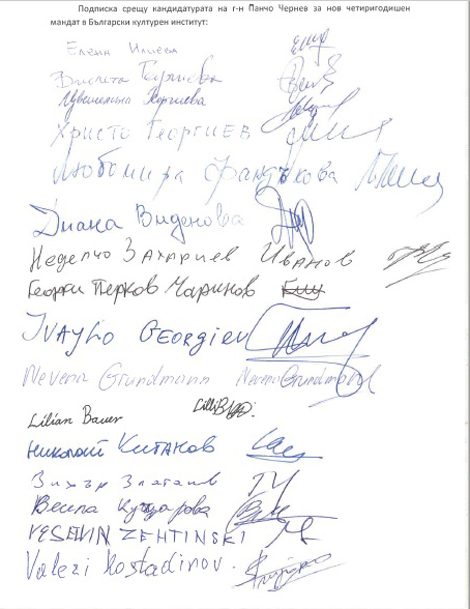 Подписка срещу кандидатурата на г-н Панчо Чернев за нов четиригодишен
мандат в Български културен институт:
Елена Илиева
Виолета Георгиева
Цветелина Георгиева
Христо Георгиев
Любомира Фандъкова
Диана Виденова
Неделчо Захариев Иванов
Георги Перков Чаринов
IVAYLO GEORGIEV
Nevena Grundmann Nevena Grundmann
Lilian Bauer
Николай Китанов
Вихър Златанов
Весела Куцарова
VESELIN ZEHTINSKI
Valeri Kostadinov